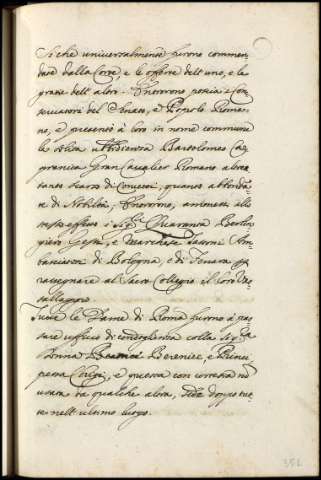 Si che universalmente furono commen-
date dalla Corte, e le offerte dell'uno, e le
gratie dell'altro. Entrorono poscia i Con-
servatori del Senato, e Popolo Roma-
no, e presentò à loro in nome commune
la solita ubbidienza Bartolomeo Ca-
pranica Gran Cavalier Romano altret-
tanto scarso di Concetti, quanto abbondan-
te di Nobiltà; Entrorono, ammessi allo
stesso effetto i Sig.ri Chiaranna Berlin-
giero Gessi, e Marchese Tassoni Am-
basciatori di Bologna, e di Ferrara per
rassegnare al Sacro Collegio il loro Vas-
sallaggio
Tutte le Dame di Roma furno à pas-
sare ufficio di condoglienza colla Sig.ra
Donna Berenice, e Princi-
pessa, e questa con cortesia non
usata da qualche altra, diede doppo tut-
te nell'ultimo luogo.
352